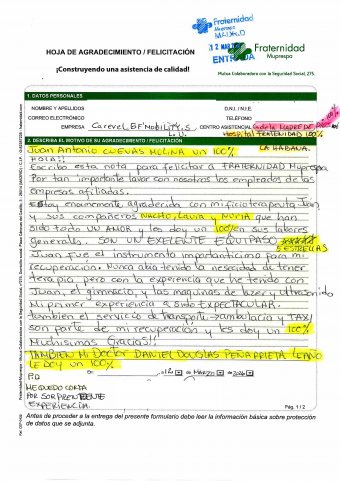 Fraternidad
Muprespa
MADRID
12 MAR
ENTRADA
Fraternidad
Muprespa
Mutua Colaboradora con la Seguridad Social, 275.
HOJA DE AGRADECIMIENTO / FELICITACIÓN
¡Construyendo una asistencia de calidad!
1. DATOS PERSONALES
NOMBRE Y APELLIDOS
D.N.I. / N.I.E.
CORREO ELECTRÓNICO
TELÉFONO
EMPRESA Carevel BF Mobility, S.L.U.
CENTRO ASISTENCIAL
Hospital FRATERNIDAD 100%
LA HABANA.
2. DESCRIBA EL MOTIVO DE SU AGRADECIMIENTO / FELICITACIÓN
Juan Antonio CUEVAS MOLINA UN 100%
HOLA!!
Escribo esta nota para felicitar a FRATERNIDAD Muprespa
Por tan importante labor con nosotros los empleados de las
empresas afiliadas.
Estoy enormemente agradecida con mi fisioterapeuta Juan
y sus compañeros NACHO, Laura y NURIA que han
sido todo UN AMOR y les doy un 100% en sus labores
generales. SON UN EXELENTE EQUIPASO
5 ESTRELLAS
Juan fue el instrumento importanticimo para mi
recuperación. Nunca abia tenido la nesecidad de tener
terapia pero con la experiencia que he tenido con
Juan, el gimnacio, y las maquinas de lazer y ultrasonido
Mi primer experiencia a sido ESPECTACULAR.
tambien el servicio de transporte ambulancia y TAXI
son parte de mi recuperación y les doy un 100%
Muchisimas Gracias!!
TAMBIEN Mi DOCTOR DANIEL DOUGLAS PEÑARRIETA LEANO
Le doy un 100%
de MARZO de
P.D
ME QUEDO CORTA
POR SORPRENDENTE
EXPERIENCIA.
Pág. 1 / 2
Antes de proceder a la entrega del presente formulario debe leer la información básica sobre protección
de datos que se adjunta.